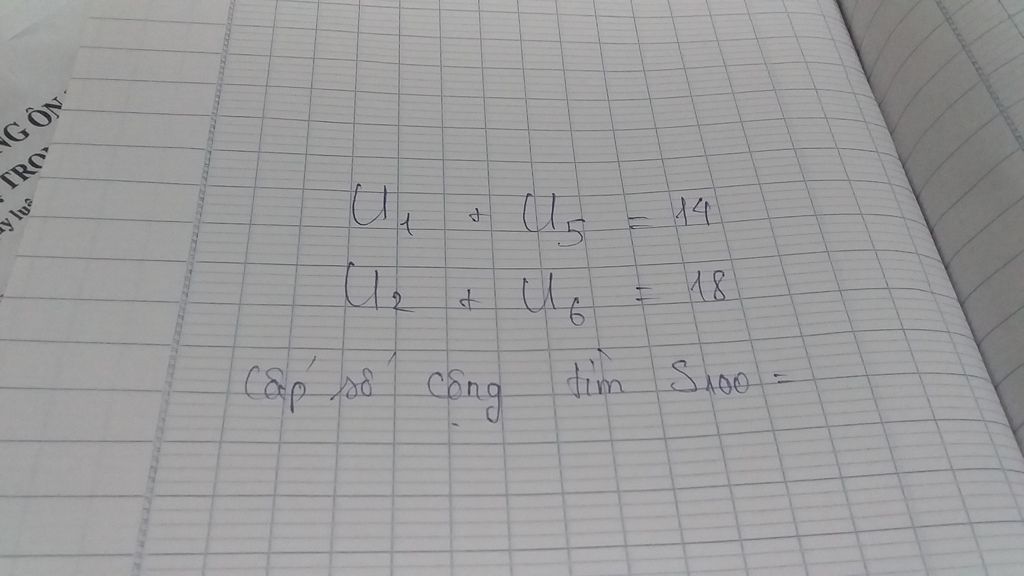 NG ÔN
TRỌN
U1 + U5 = 14
U2 + U6 = 18
Cấp số cộng tìm S100 =